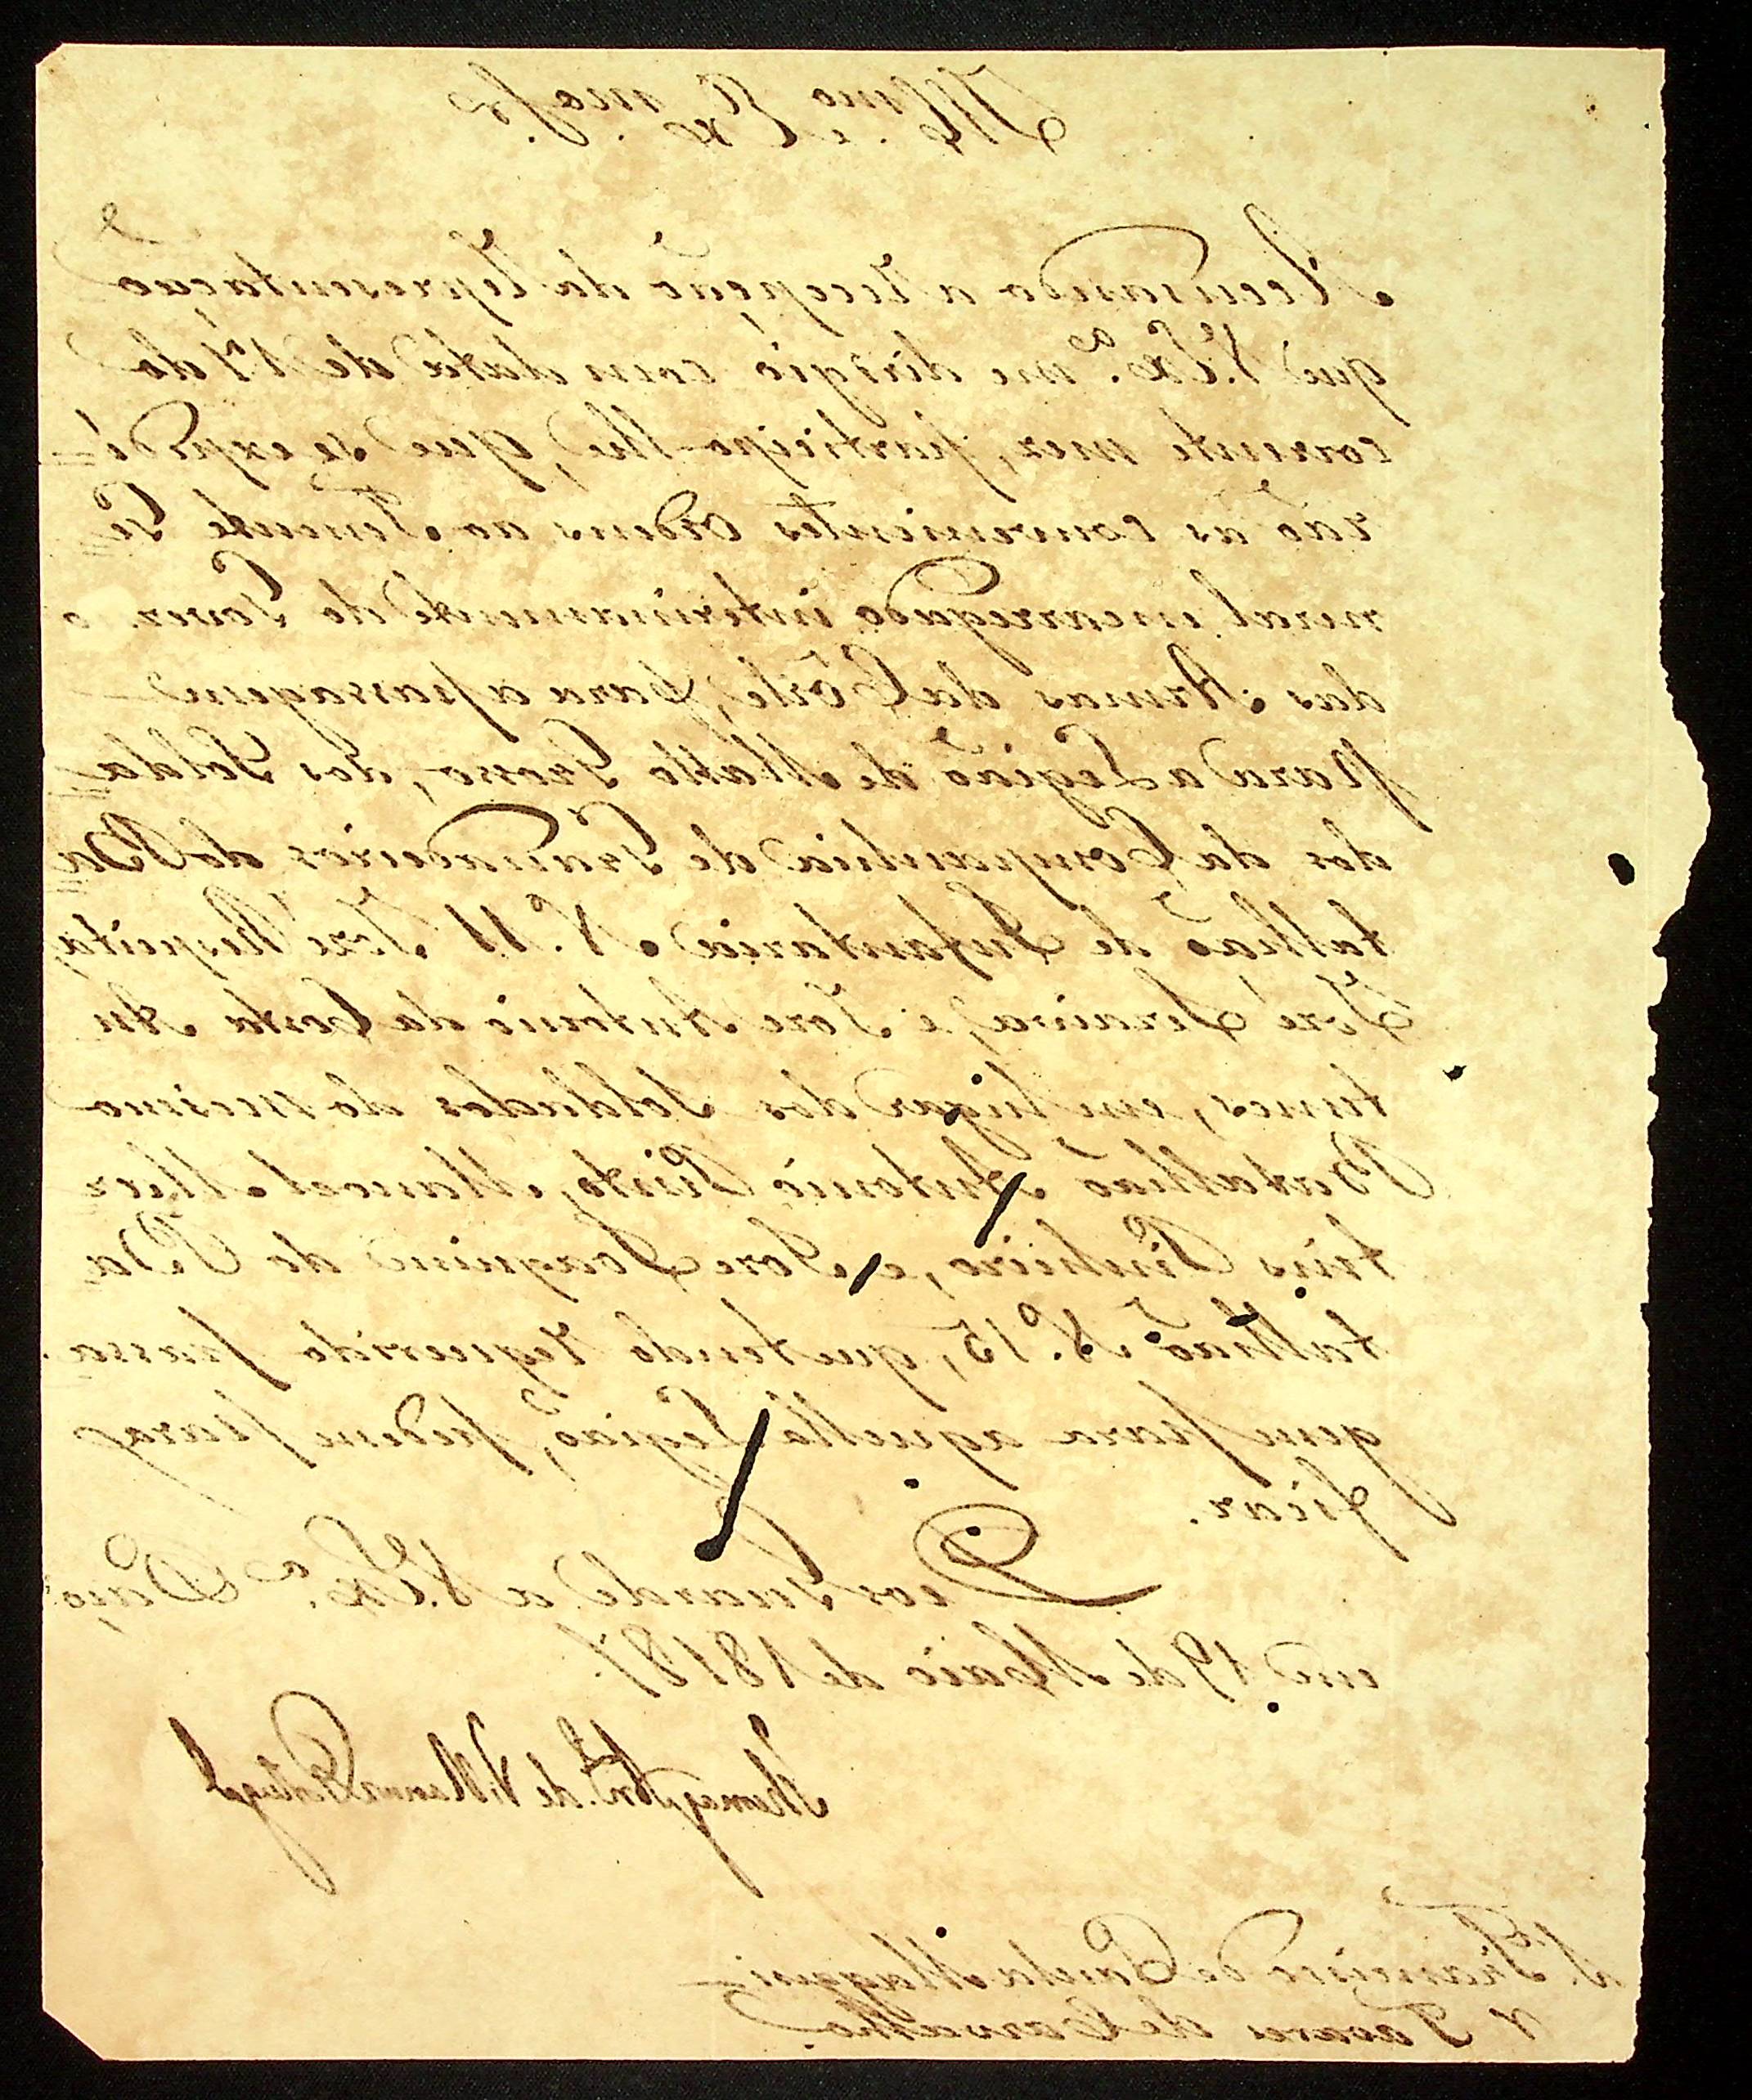 Ill.mo e Ex.mo Sr.
Accusando a recepçaõ da Representaçaõ
que V. Ex.a me dirigio com data de 14 do
corrente mez, participo-lhe, que se expedi=
raõ as convenientes Ordens ao Tenente Ge=
neral encarregado interinamente do Gover.o
das Armas da Côrte, para a passagem
para a Legiaõ de Matto Grosso, dos Solda=
dos da Companhia de Granadeiros do Ba=
talhaõ de Infantaria N.o 11 Jozé Mesquita,
Jozé Saraiva, e Joze Antonio da Costa An
tunes, em lugar dos Soldados do mesmo
Batalhaõ Antonio Pinto, Manoel Mar
tins Pinheiro, e Joze Joaquim do Ba
talhaõ N.o 15, que tendo requerido passa=
gem para aquella Legiaõ, pedem para
ficar.
Deos Guarde a V. Ex.a Paço
em 19 de Maio de 1818
Thomaz Ant.o de Villanova Portugal
S.r Francisco de Paula Magessi
Tavares de Carvalho.